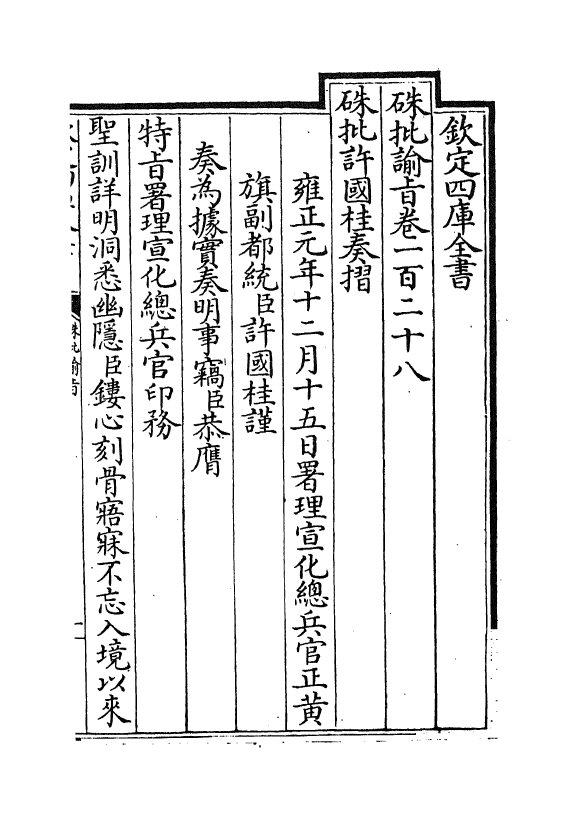 欽定四庫全書
硃批諭旨卷一百二十八
硃批許國桂奏摺
雍正元年十二月十五日署理宣化總兵官正黃
旗副都統臣許國桂謹
奏為據實奏明事竊臣恭膺
特旨署理宣化總兵官印務
聖訓詳明洞悉幽隱臣鏤心刻骨寤寐不忘入境以來
硃批諭旨